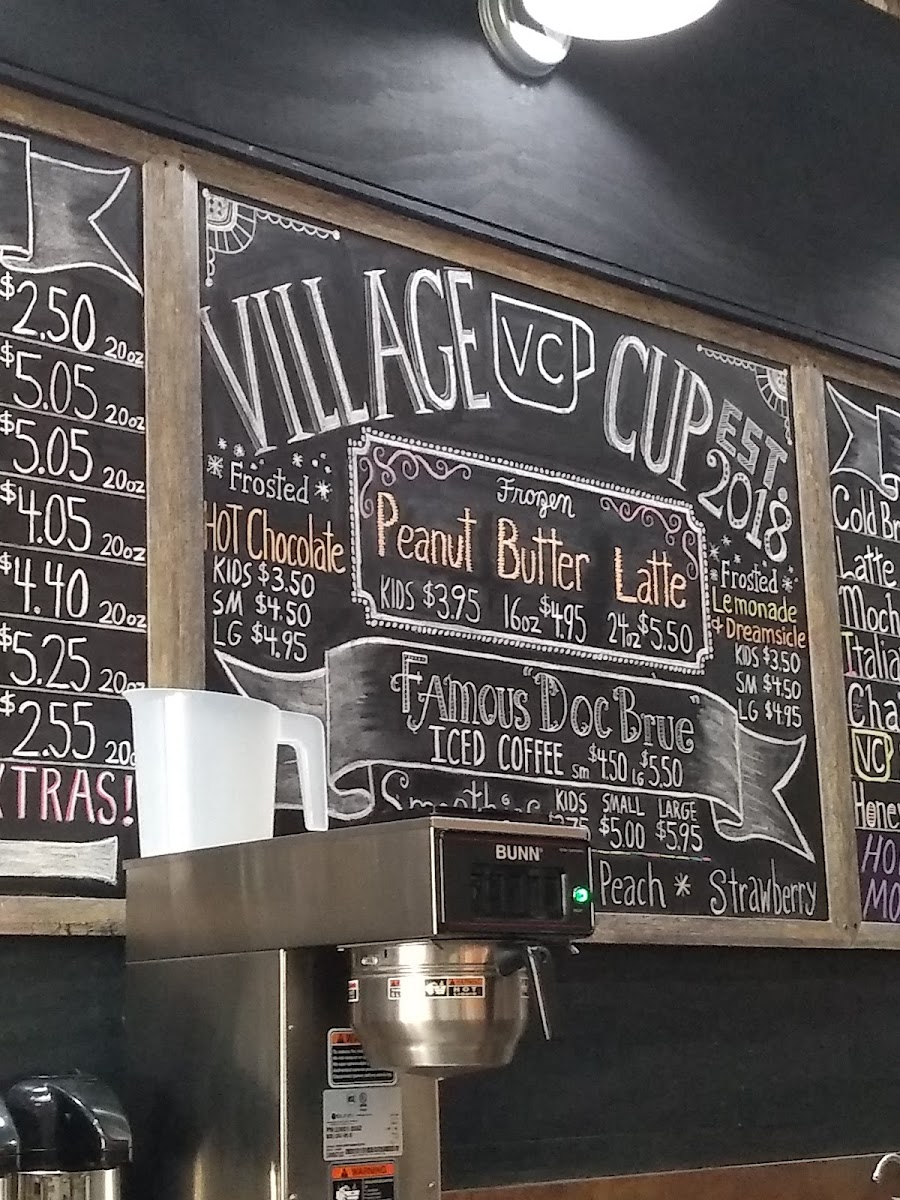 $2.50 20oz
$5.05 20oz
$5.05 20oz
$4.05 20oz
$4.40 20oz
$5.25 20oz
$2.55 20
XTRAS!
VILLAGE VC CUP
EST. 2018
Frosted
HOT Chocolate
KIDS $3.50
SM $4.50
LG $4.95
Frozen
Peanut Butter Latte
KIDS $3.95 16oz $4.95 24oz $5.50
Frosted
Lemonade
+ Dreamsicle
KIDS $3.50
SM $4.50
LG $4.95
FAMOUS "DOC BRUE"
ICED COFFEE Sm $4.50 LG $5.50
Smoothie KIDS SMALL LARGE
$5.00 $5.95
Peach * Strawberry
Cold Br
Latte
Moch
Italia
Cha
VC
Honey
HO
MO
BUNN
HOT
WARNING